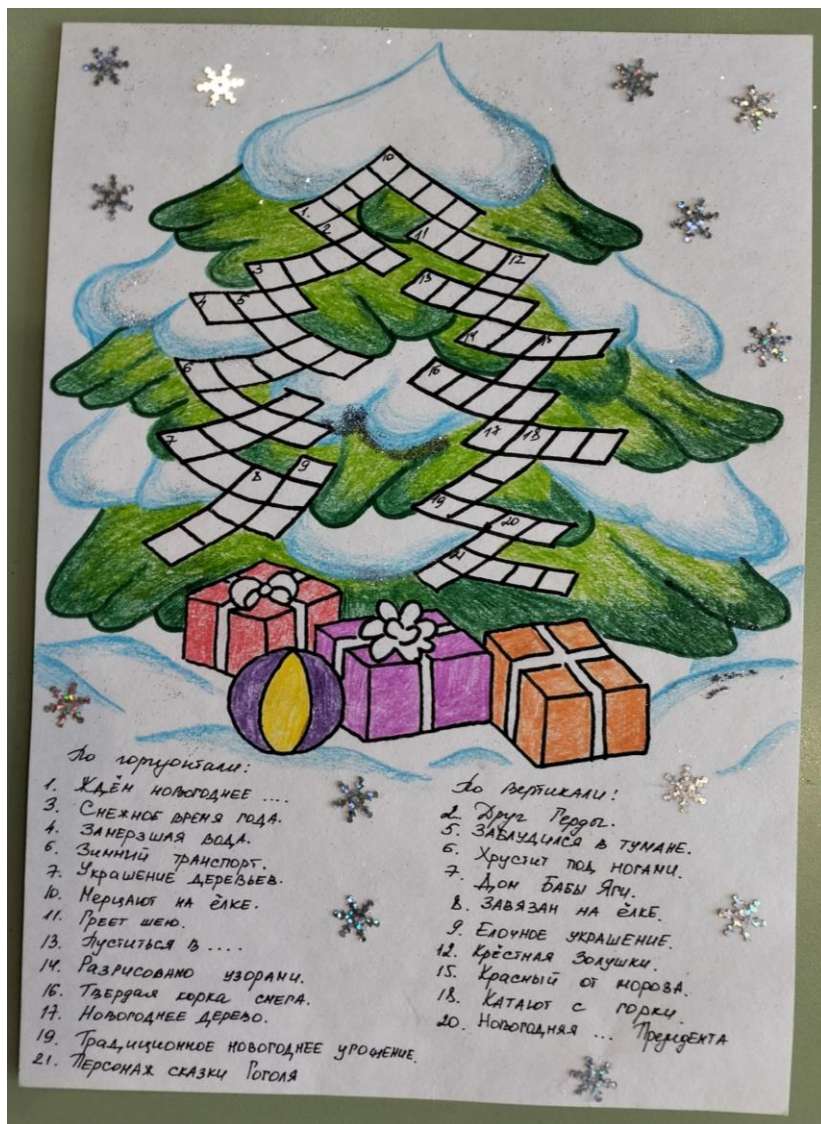 10
1.
2
11
12
3
13
4
5
14
15
6
16
7
17
18
8
9
19
20
21
По горизонтали:
1. Ждём новогоднее ....
3. Снежное время года.
4. Замерзшая вода.
6. Зимний транспорт.
7. Украшение деревьев.
10. Мерцают на ёлке.
11. Греет шею.
13. Пуститься в ....
14. Разрисовано узорами.
16. Твёрдая корка снега.
17. Новогоднее дерево.
19. Традиционное новогоднее угощение.
21. Персонаж сказки Гоголя
По вертикали:
2. Друг Герды.
5. Заблудился в тумане.
6. Хрустит под ногами.
7. Дом Бабы Яги.
8. Завязан на ёлке.
9. Елочное украшение.
12. Крёстная Золушки.
15. Красный от мороза.
18. Катают с горки.
20. Новогодняя ... Президента